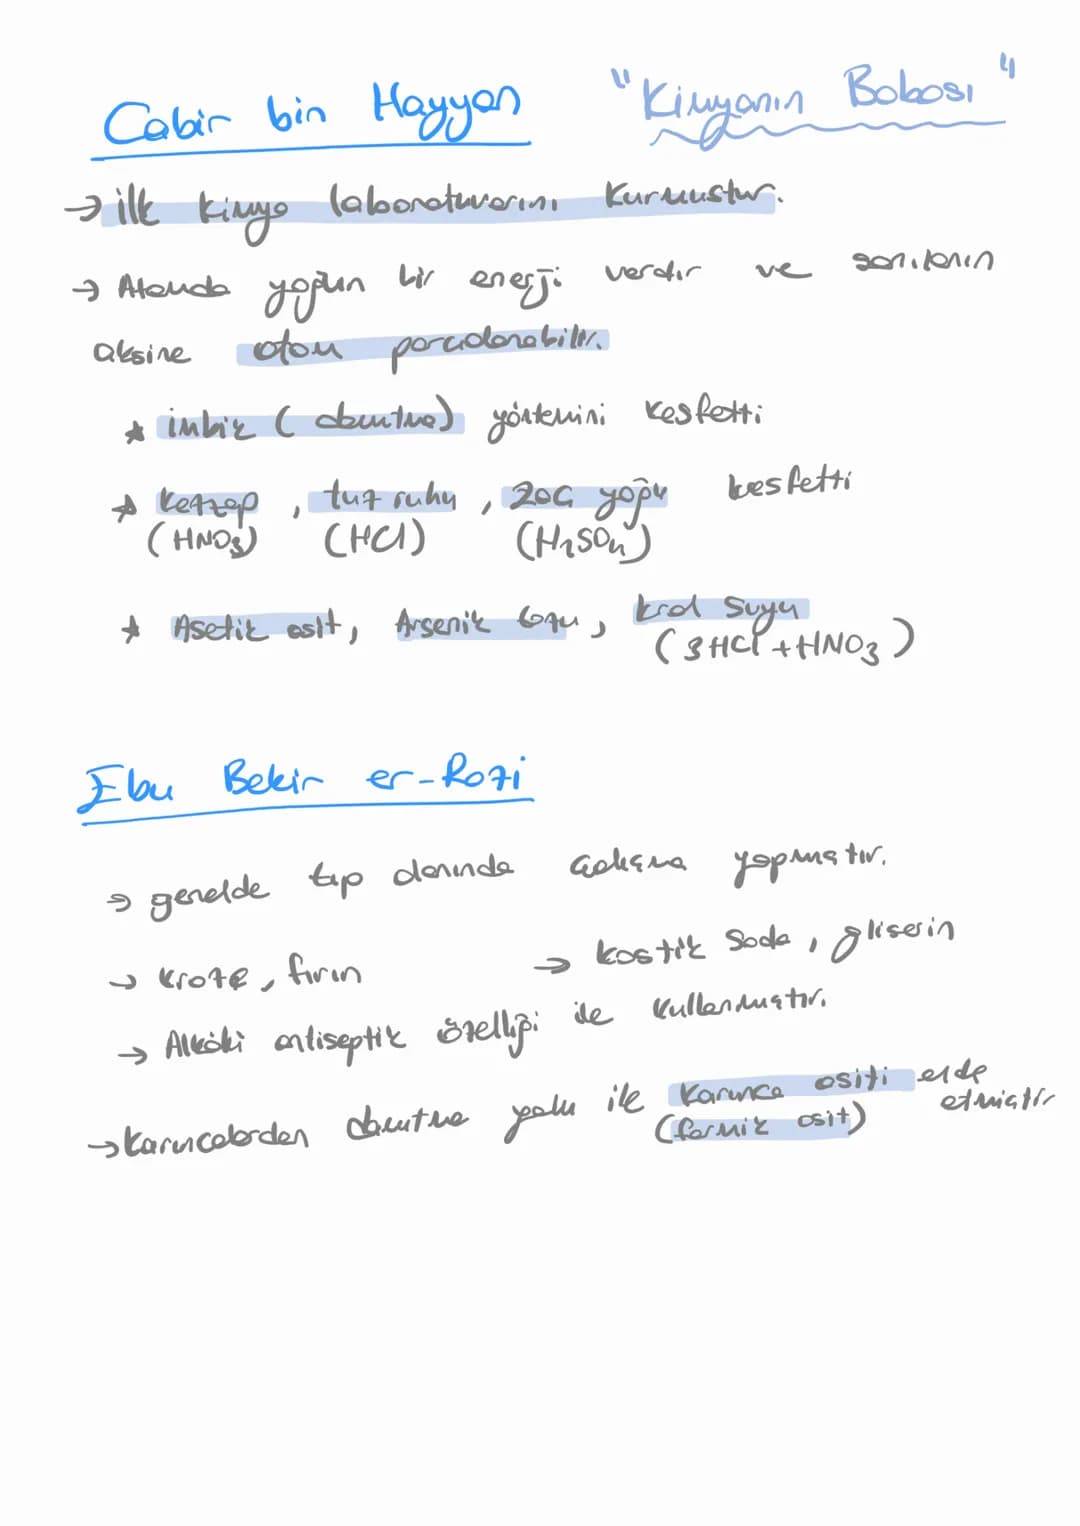 Cabir bin Hayyan "Kimyanın Babası"
→ ilk kimya laboratuvarını kurmuştur.
→ Atomda yoğun bir enerji vardır ve sanılanın
aksine atom parçalanabilir.
★ imbik (damıtma) yöntemini keşfetti
★ kezzap, tuz ruhu, zaç yağı keşfetti
(HNO3) (HCl) (H2SO4)
★ Asetik asit, Arsenik tozu, kral suyu
(3HCl + HNO3)
Ebu Bekir er-Razi
→ genelde tıp alanında çalışma yapmıştır.
→ kroze, fırın → kostik soda, gliserin
→ Alkolü antiseptik özelliği ile kullanmıştır.
→ karıncalardan damıtma yolu ile karınca asiti elde
etmiştir
(formik asit)